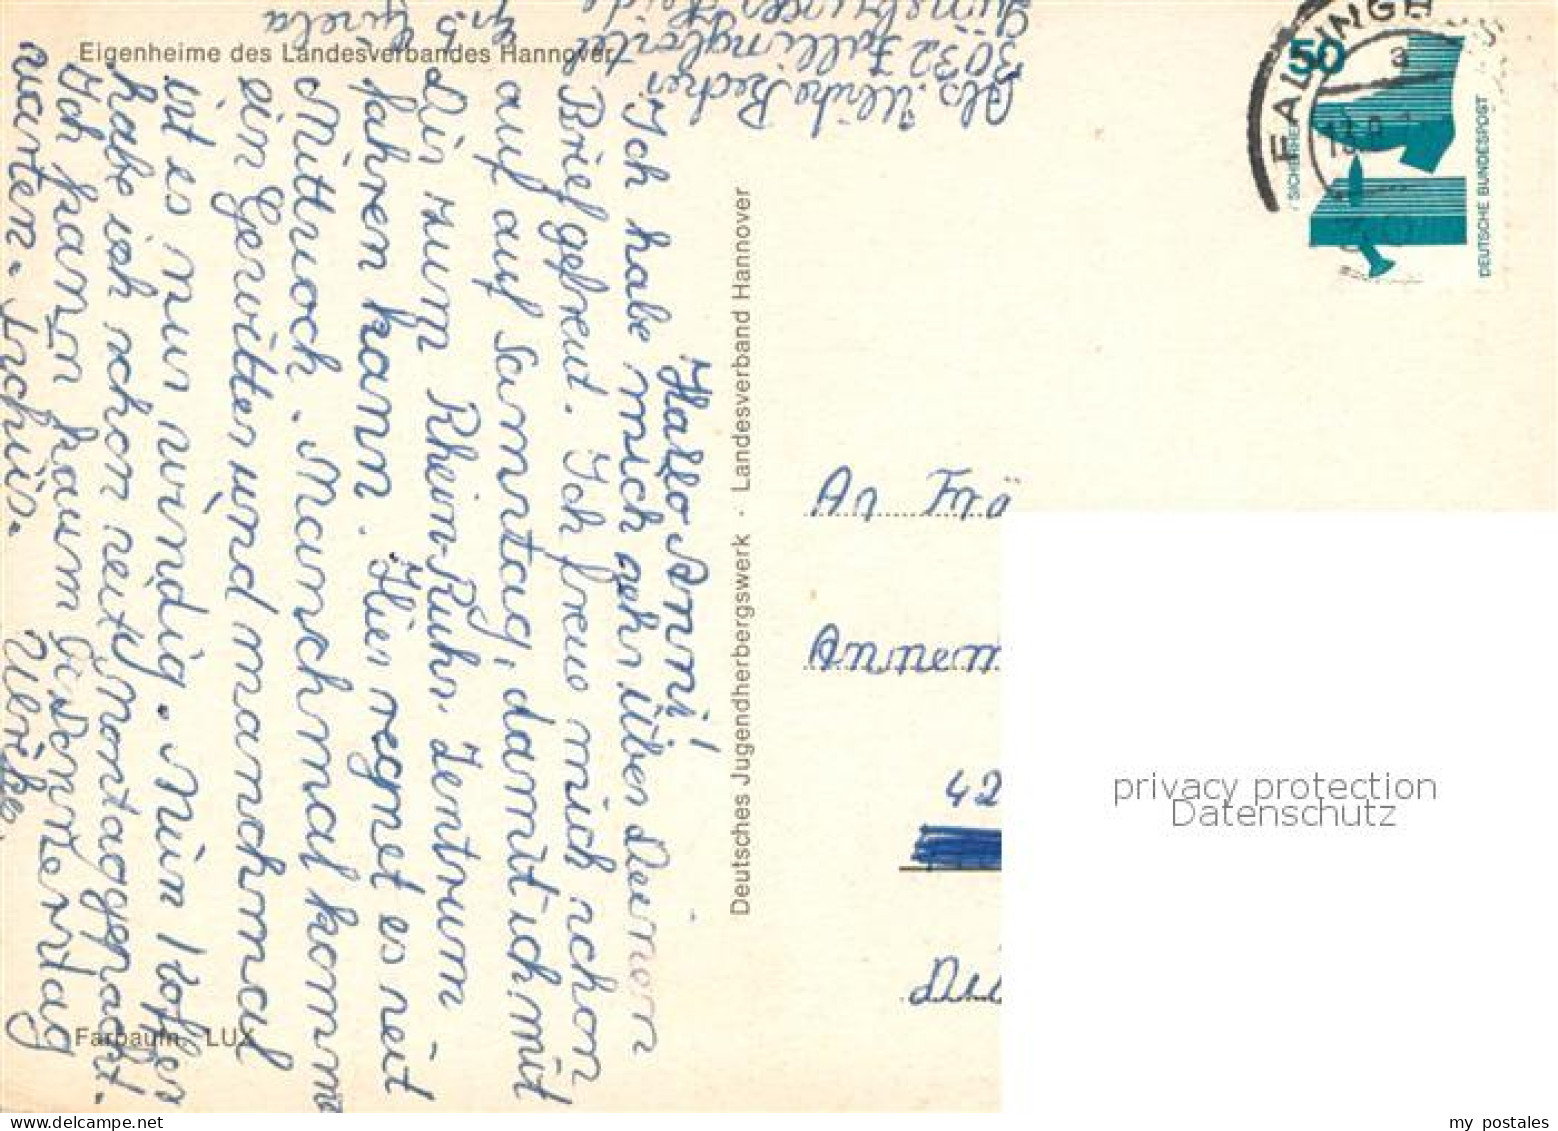 Eigenheime des Landesverbandes Hannover
Hallo Anni!
Ich habe mich sehr über Deinen
Brief gefreut. Ich freue mich schon
auf auf Samstag, damit ich mit
Dir zum Rhein-Ruhr. Zentrum
fahren kann. Hier regnet es seit
Mittwoch. Manschmal kommt
ein Gewitter und manchmal
ist es nur windig. Mein Koffer
habe ich schon seit Montag gepackt.
Ich kann kaum bis Donnerstag
warten. Tschüs.
Ulrike.
Farbaufn. LUX
Deutsches Jugendherbergswerk · Landesverband Hannover
Abs. Ulrike Becher
3032 Fallingbostel
Lüneburger Heide
Gr. 5
Gisela
FALLINGB
50
DEUTSCHE BUNDESPOST
An Frä
Annem
42
privacy protection
Datenschutz
my postales